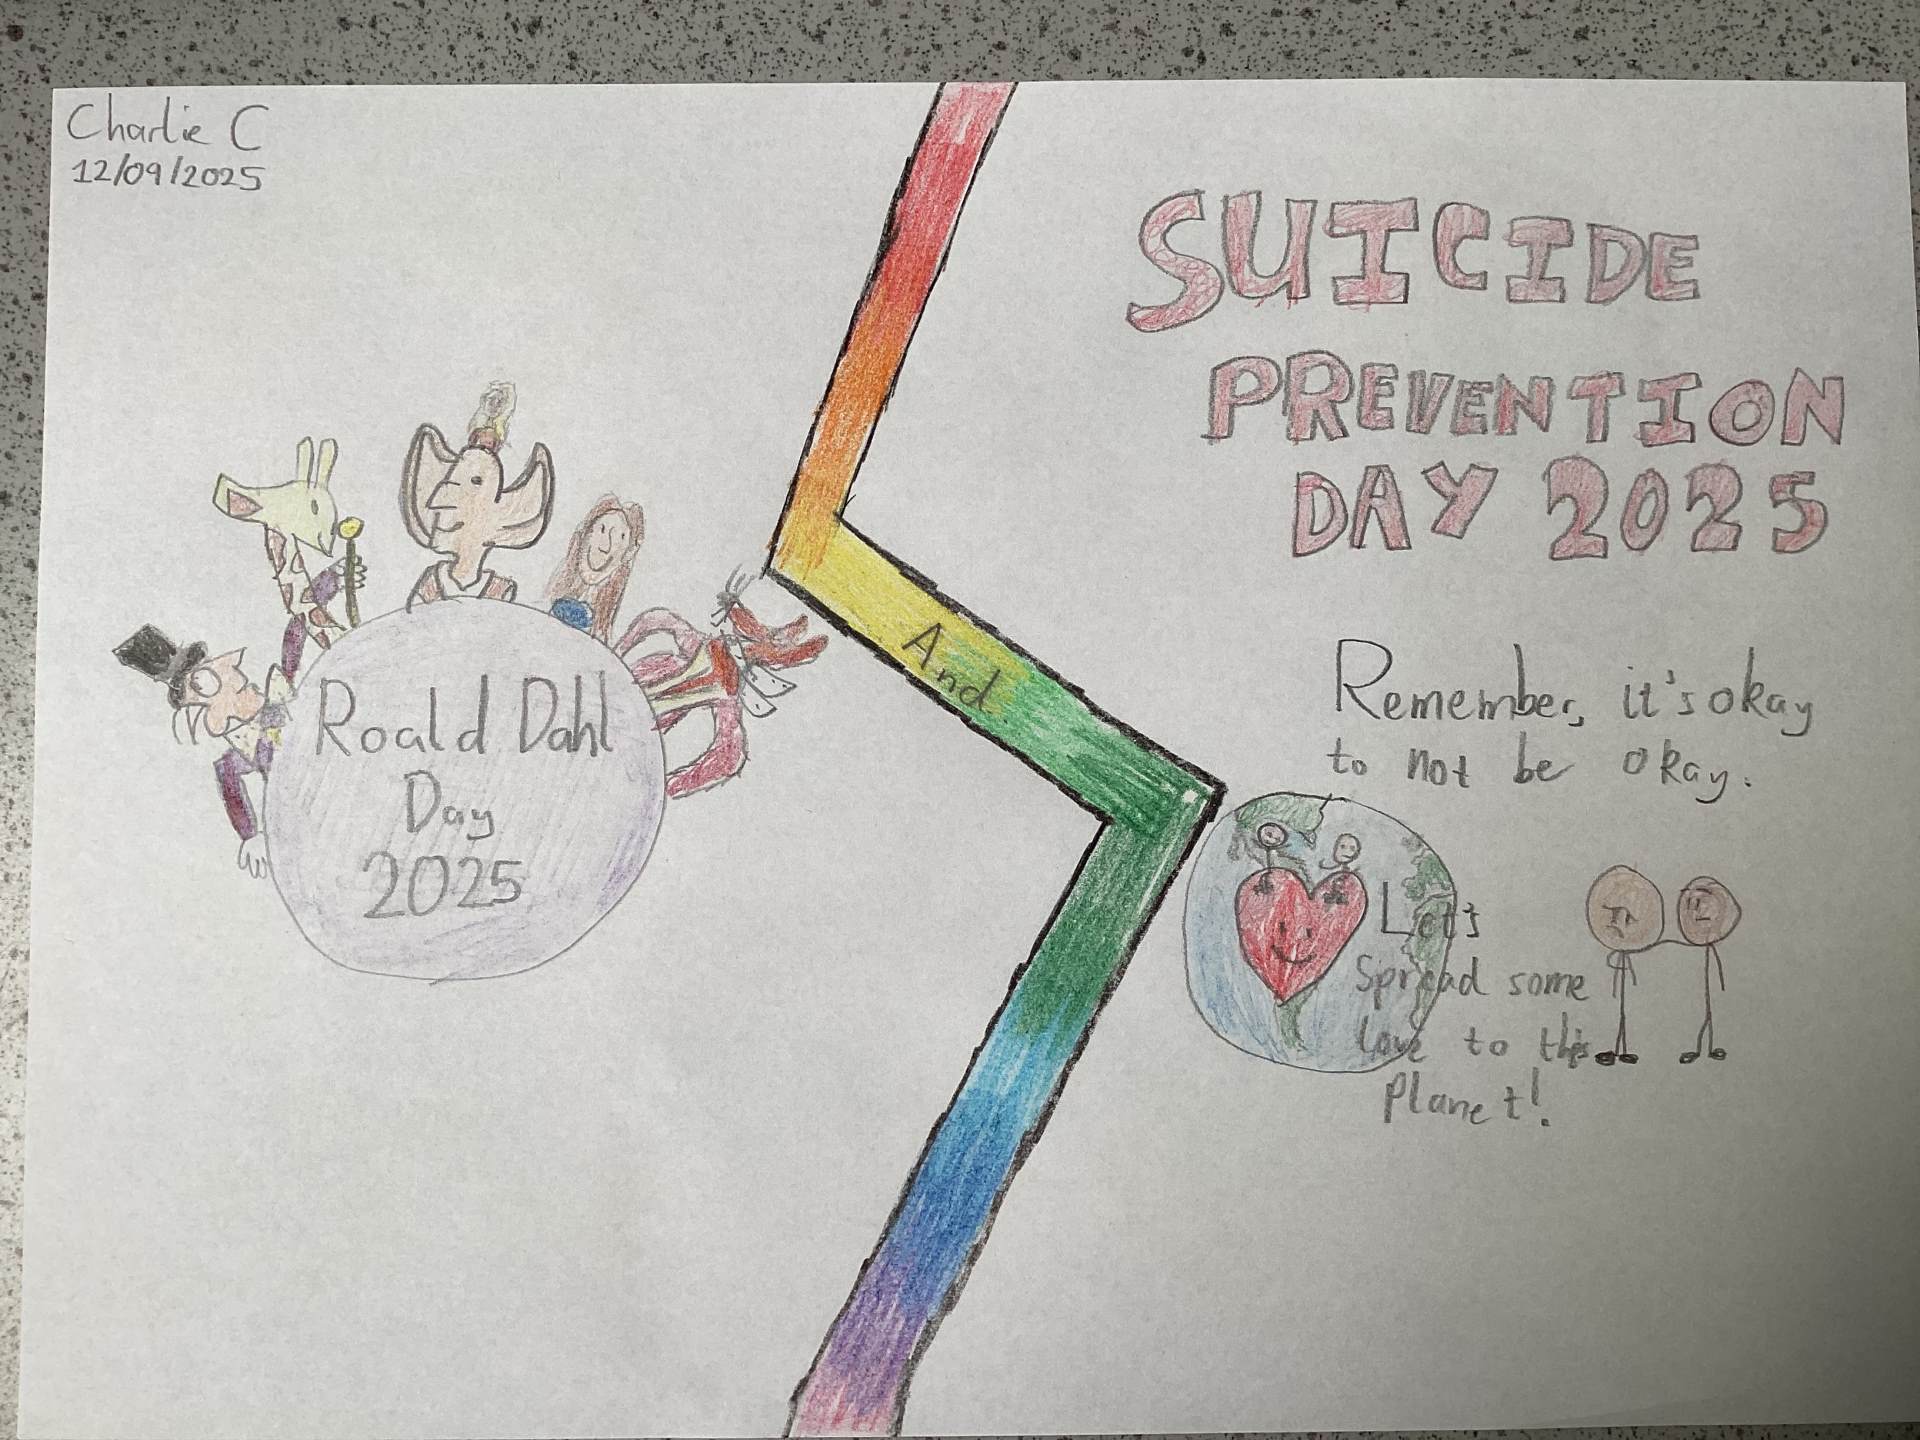 Charlie C
12/09/2025
Roald Dahl
Day
2025
And
SUICIDE
PREVENTION
DAY 2025
Remember, it's okay
to not be okay.
Let's
Spread some
love to this
Planet!